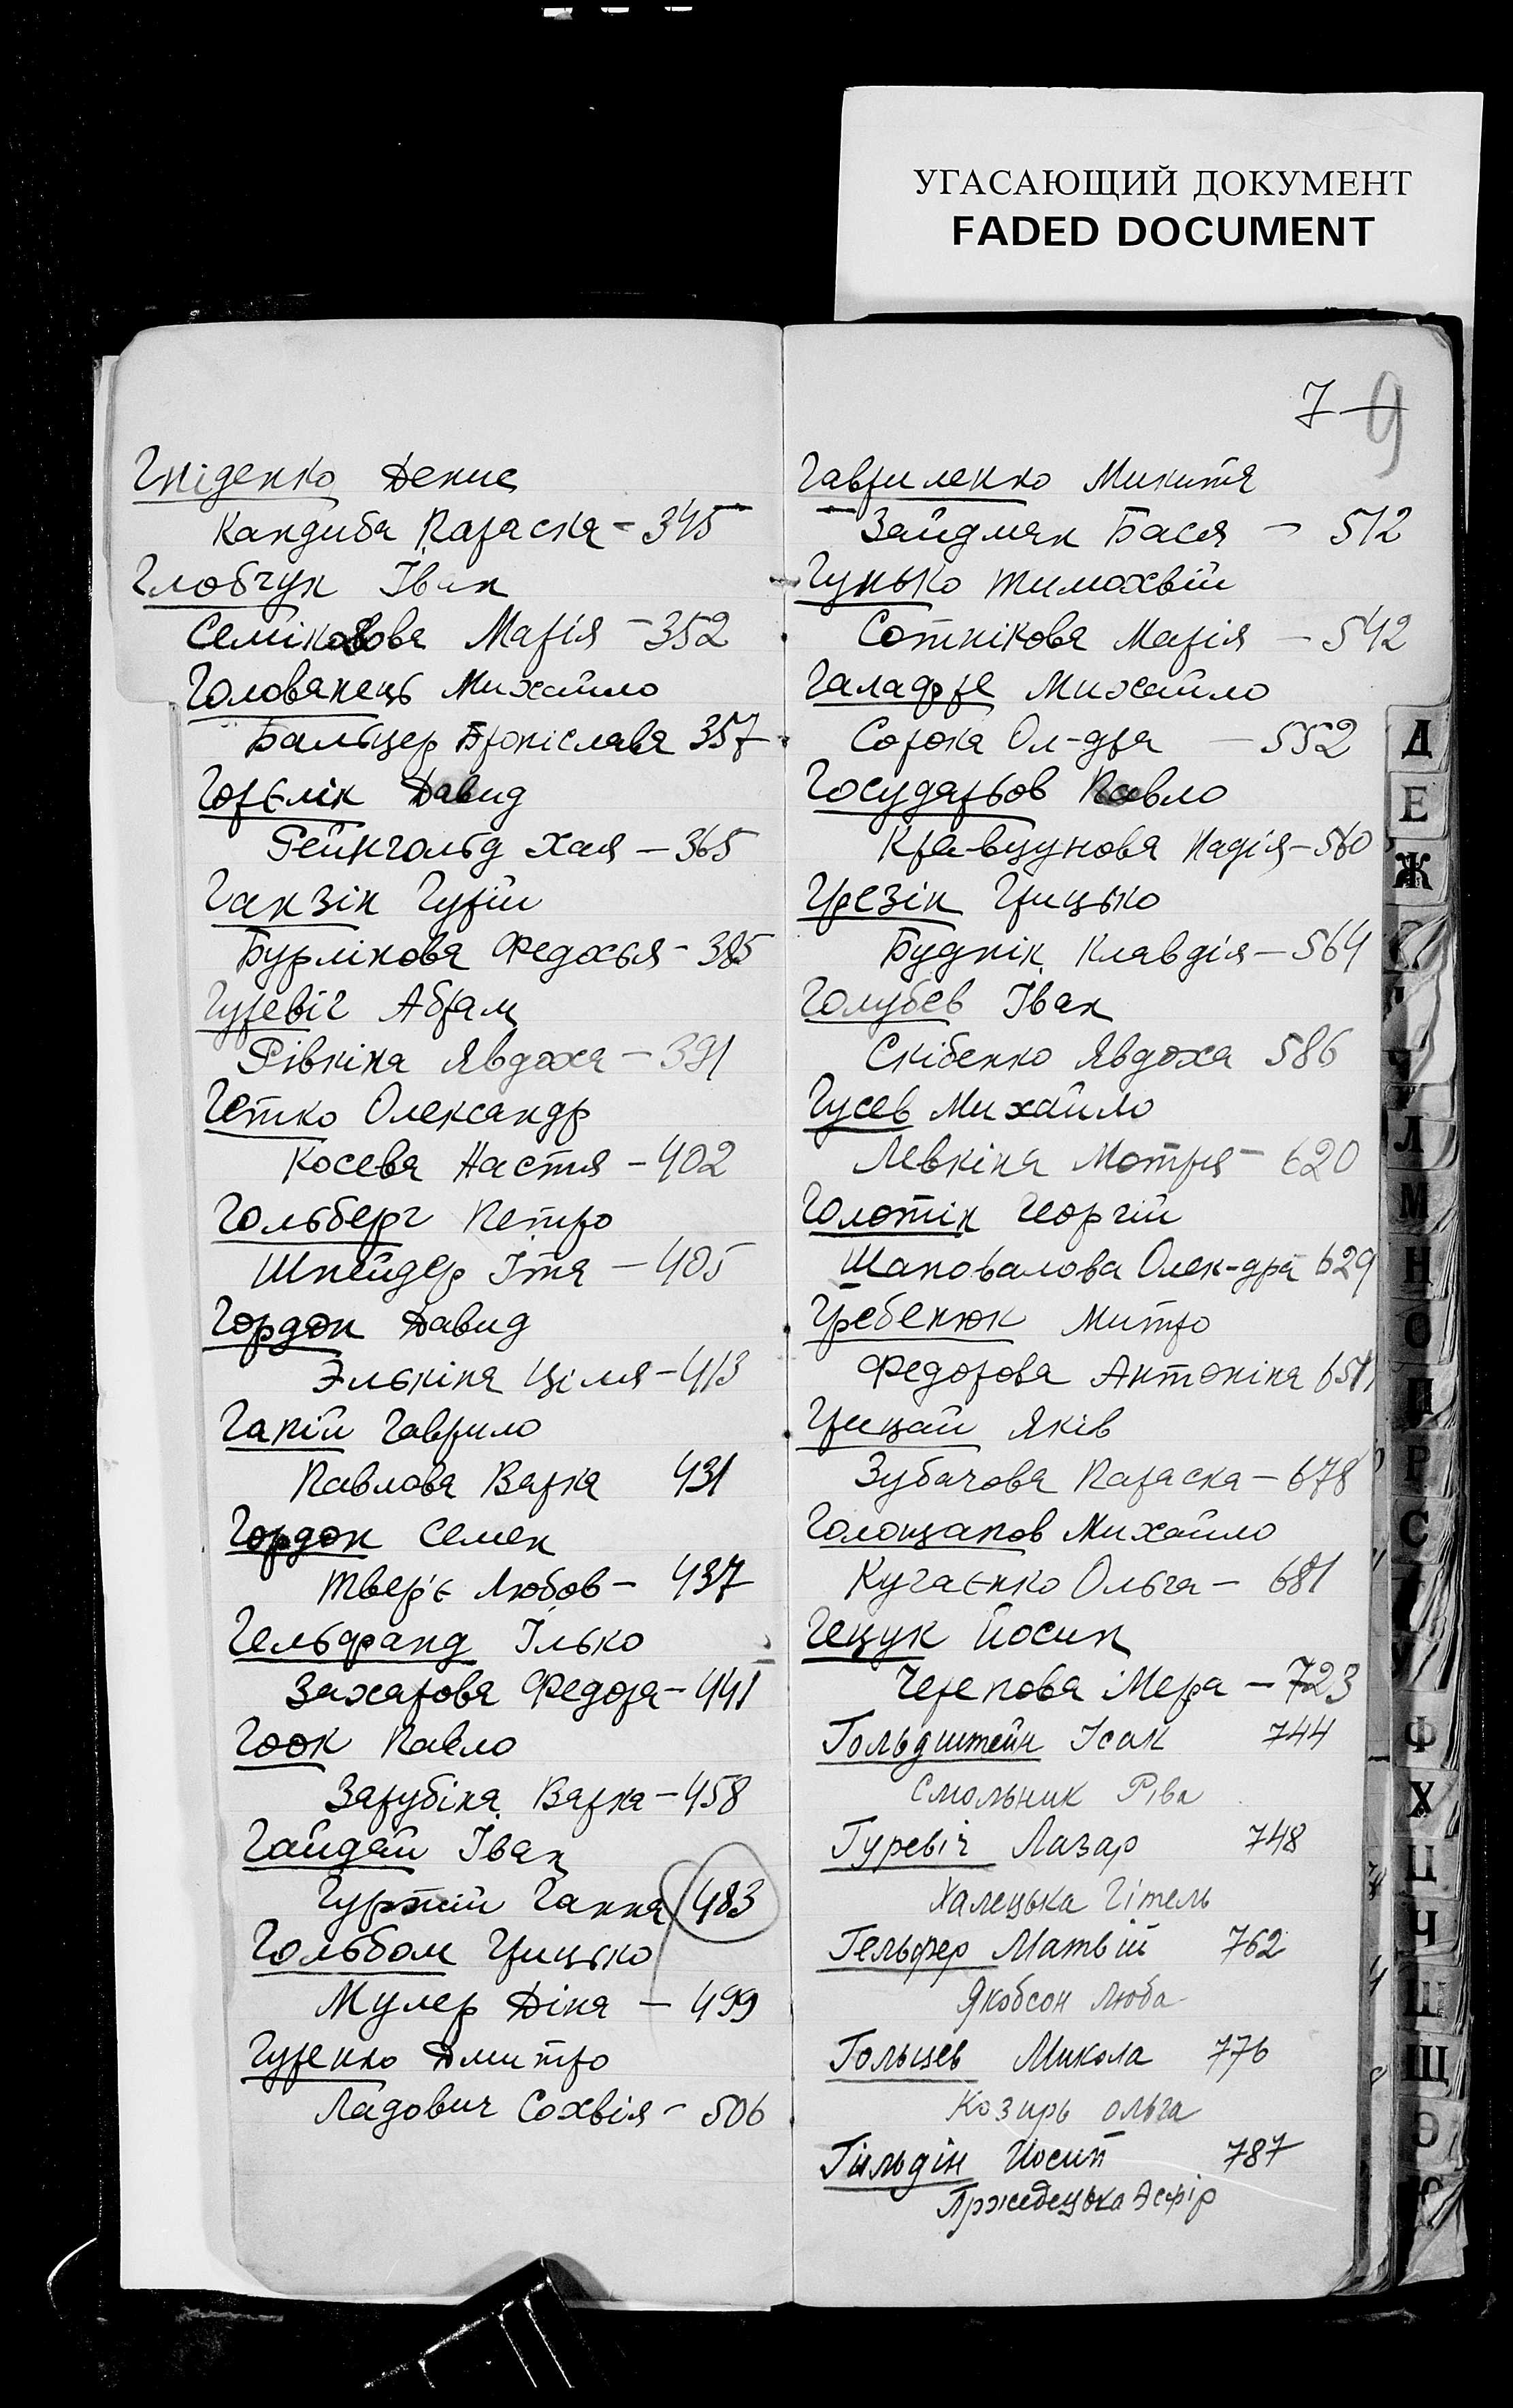 УГАСАЮЩИЙ ДОКУМЕНТ
FADED DOCUMENT
Гніденко Денис
Кандиба Параска - 345
Глобчук Іван
Семікозова Марія - 352
Голованець Михайло
Бальцер Броніслава 357
Горєлік Давид
Рейнгольд Хая - 365
Ганзін Гурій
Бурлікова Федосья - 385
Гуревіч Абрам
Рівкіна Явдоха - 391
Гетко Олександр
Косева Настя - 402
Гольберг Петро
Шнейдер Ітя - 405
Гордон Давид
Элькіна Ціля - 413
Гапій Гаврило
Павлова Варка 431
Гордон Семен
Твер'є Любов - 437
Гельфранд Ілько
Захарова Федора - 441
Гоок Павло
Зарубіна Варка - 458
Гайдай Іван
Гуржій Ганна 483
Гольбом Грицько
Мулер Діна - 499
Гуренко Дмитро
Ладович Сохвія - 506
7 9
Гавриленко Микита
Зайдман Бася - 512
Гунько Тимохвій
Сотнікова Марія - 542
Галадзе Михайло
Сорока Ол-дра - 552
Государьов Павло
Кравцунова Надія - 560
Грезін Грицько
Буднік Клавдія - 564
Голубєв Іван
Скібенко Явдоха 586
Гусев Михайло
Левкіна Мотря - 620
Голотін Георгій
Шаповалова Олек-дра 629
Гребенюк Митро
Федорова Антоніна 651
Грицай Яків
Зубачова Параска - 678
Голощапов Михайло
Кучаєнко Ольга - 681
Гецук Йосип
Черепова Мера - 723
Гольдштейн Ісак 744
Смольник Ріва
Гуревіч Лазар 748
Халецька Гітель
Гельфер Матвій 762
Якобсон Люба
Гольцев Микола 776
Козирь Ольга
Гільдін Иосип 787
Пржебецька Эсфір
Д
Е
Ж
Л
М
Н
О
П
Р
С
У
Ф
Х
Ц
Ч
Ш
Щ